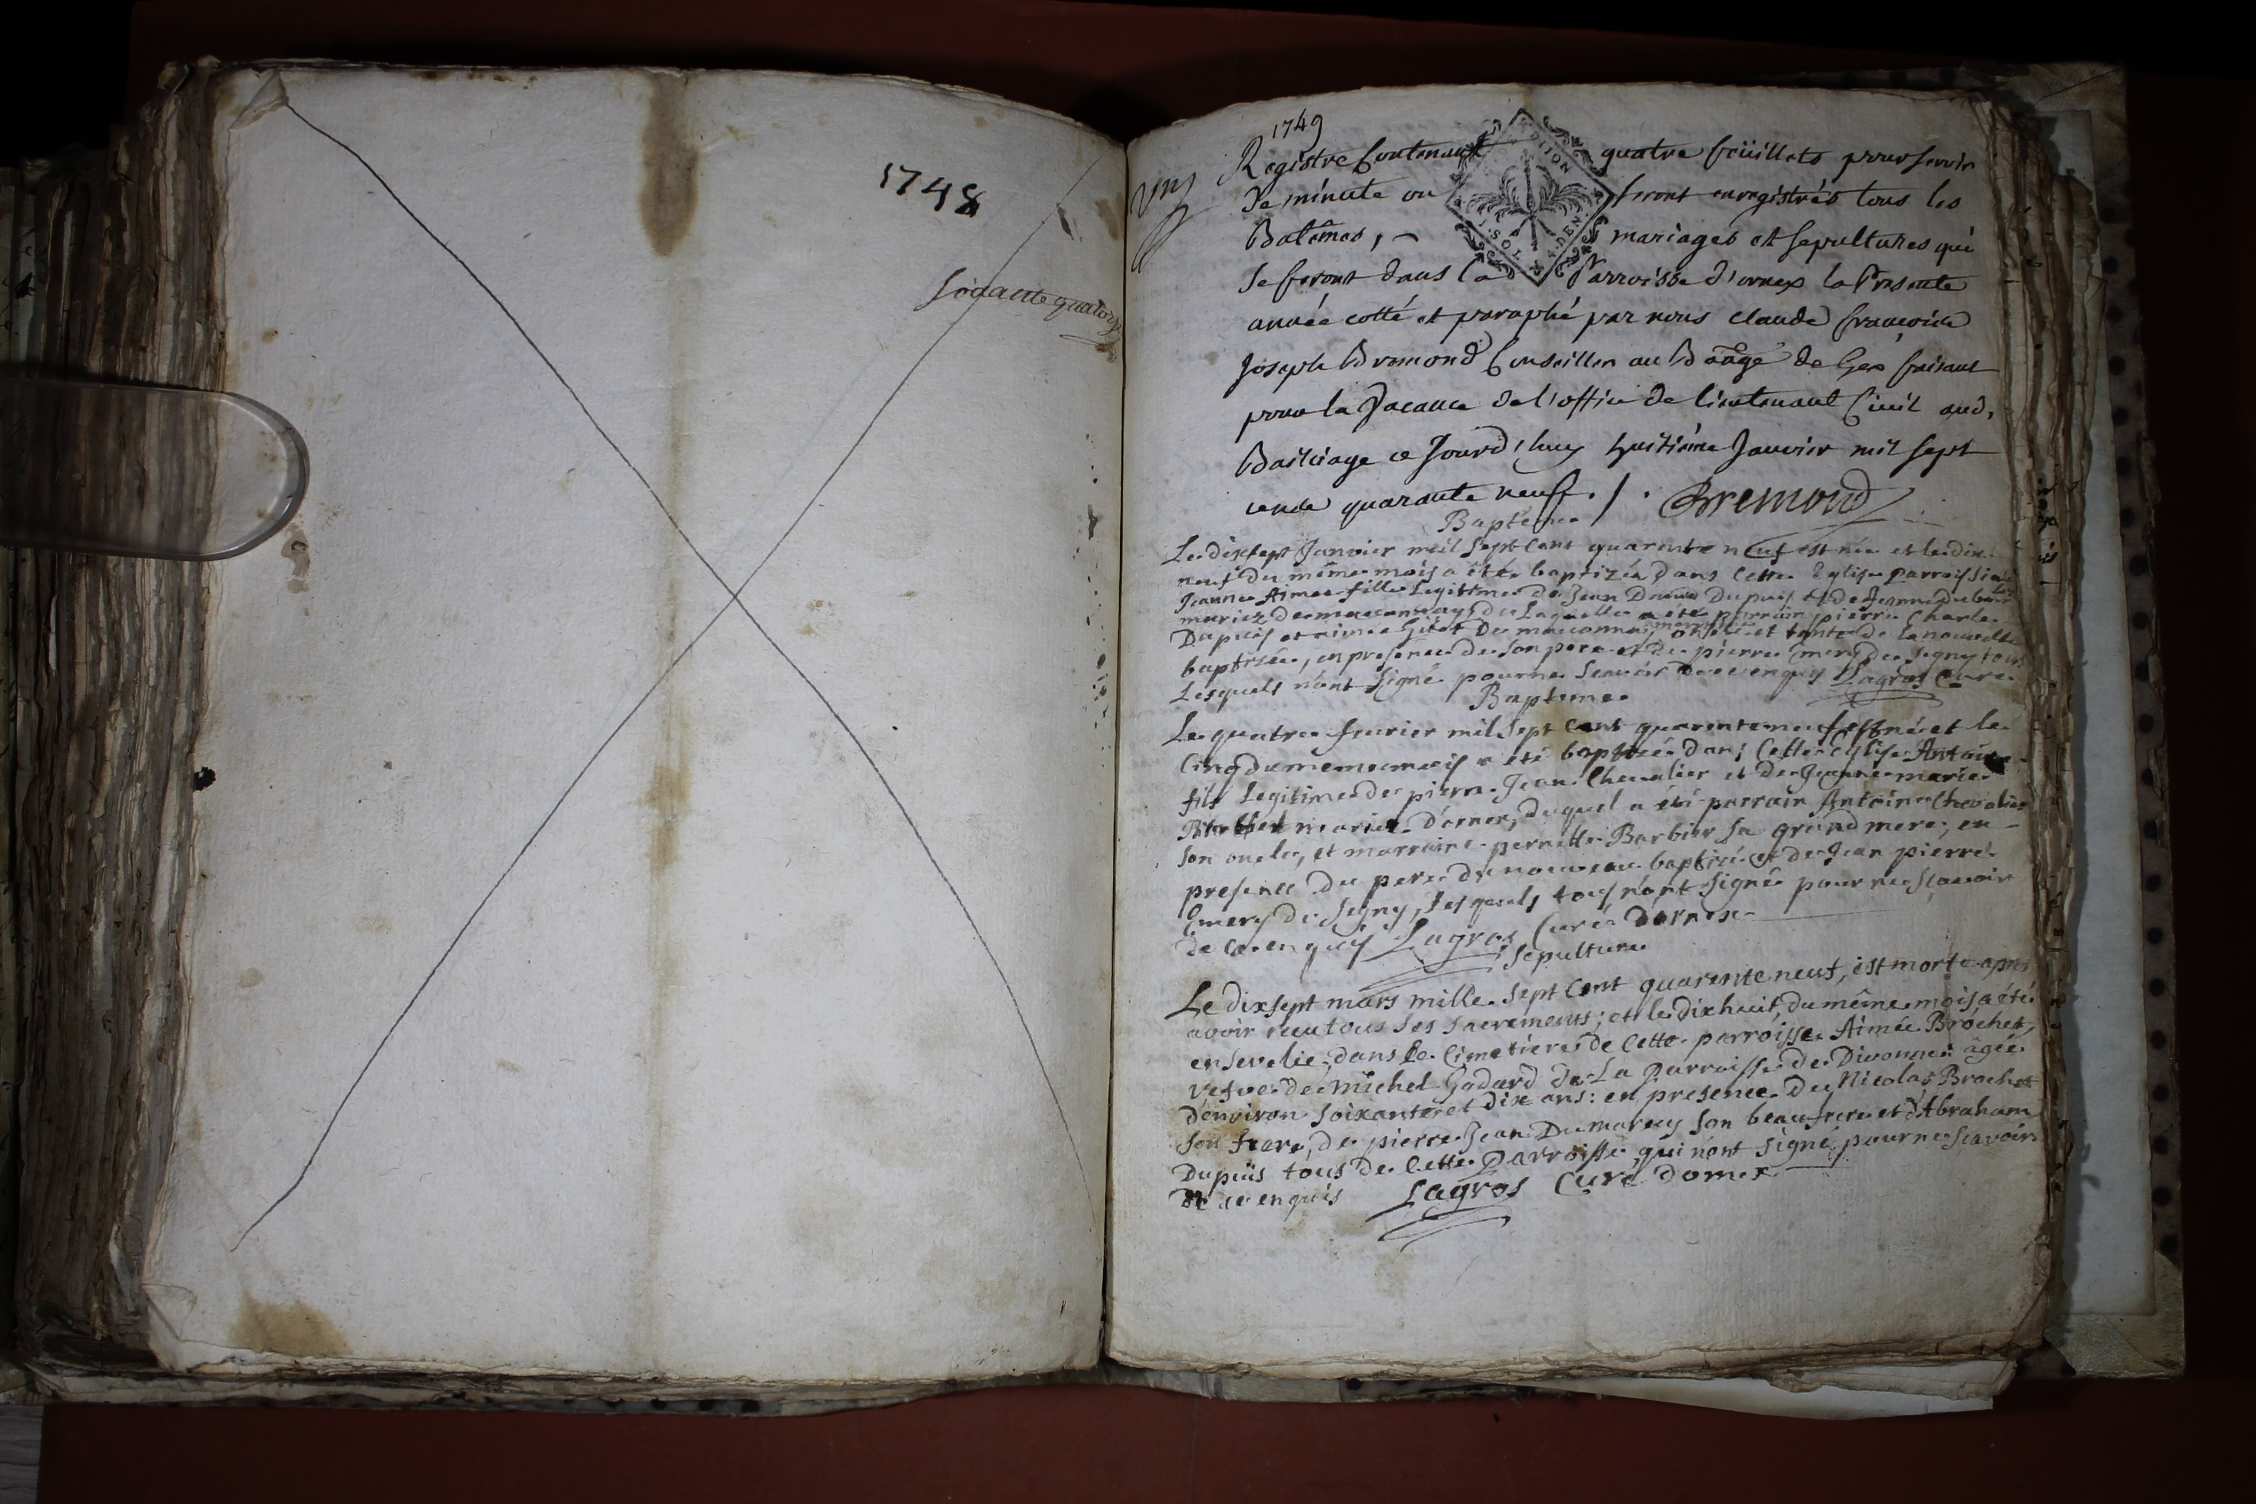 1748
soixante quatorze
1749
un
Registre Contenant quatre feüillets pour servir
De minute ou seront enregistrés tous les
Batêmes, mariages et sepultures qui
Se feront dans la Parroisse d'ornex la Presente
année cotté et paraphé par nous Claude françois
Joseph Bremond Conseiller au Bâage de Gex faisant
pour la Vacance de l'office de lieutenant Civil aud.
Bailliage ce Jourd'huy huitiéme Janvier mil sept
cende quarante neuf . / . Bremond
Bapteme
Le dixsept Janvier mil sept Cent quarente neuf est née et le dix
neuf du même mois a été baptizée Dans Cette Eglise parroissiale
Jeanne Aimée fille Legitime de Jean Dupuis et de Jeanne
mariez de maconnay, de Laquelle a été parrain pierre Charle
Dupuis et aimée de maconnay, oncle et tante de la nouvelle
baptisée, en presence de Son pere et de pierre Emery de Segny tous
Lesquels n'ont signé pour ne scavoir de ce enquis Lagros Cure
Bapteme
Le quatre fevrier mil sept Cent quarente neuf est né et le
Cinq du meme mois a été baptisé dans Cette Eglise Antoine
fils Legitime de pierre Jean Chevalier et de Jeanne marie
mariez d'ornex, duquel a été parrain Antoine Chevalier
Son oncle, et marraine pernette Barbier Sa grand mere, en
presence du pere du nouveau baptisé et de Jean pierre
Emery de Segny, Lesquels tous n'ont signé pour ne scavoir
de ce enquis Lagros Curé Dornex
Sepulture
Le dixsept mars mille sept Cent quarente neuf, est morte apres
avoir recu tous ses sacrements; et le dixhuit du même mois a été
ensevelie dans le Cimetiere de Cette parroisse Aimée Brochet,
vefve de michel Godard de La Parroisse de Divonne âgée
d'environ soixante et dix ans: en presence de Nicolas Brochet
Son frere, de pierre Jean Dumarey Son beaufrere et d'Abraham
Dupuis tous de Cette Parroisse, qui n'ont signé pour ne scavoir
De ce enquis Lagros Cure dornex